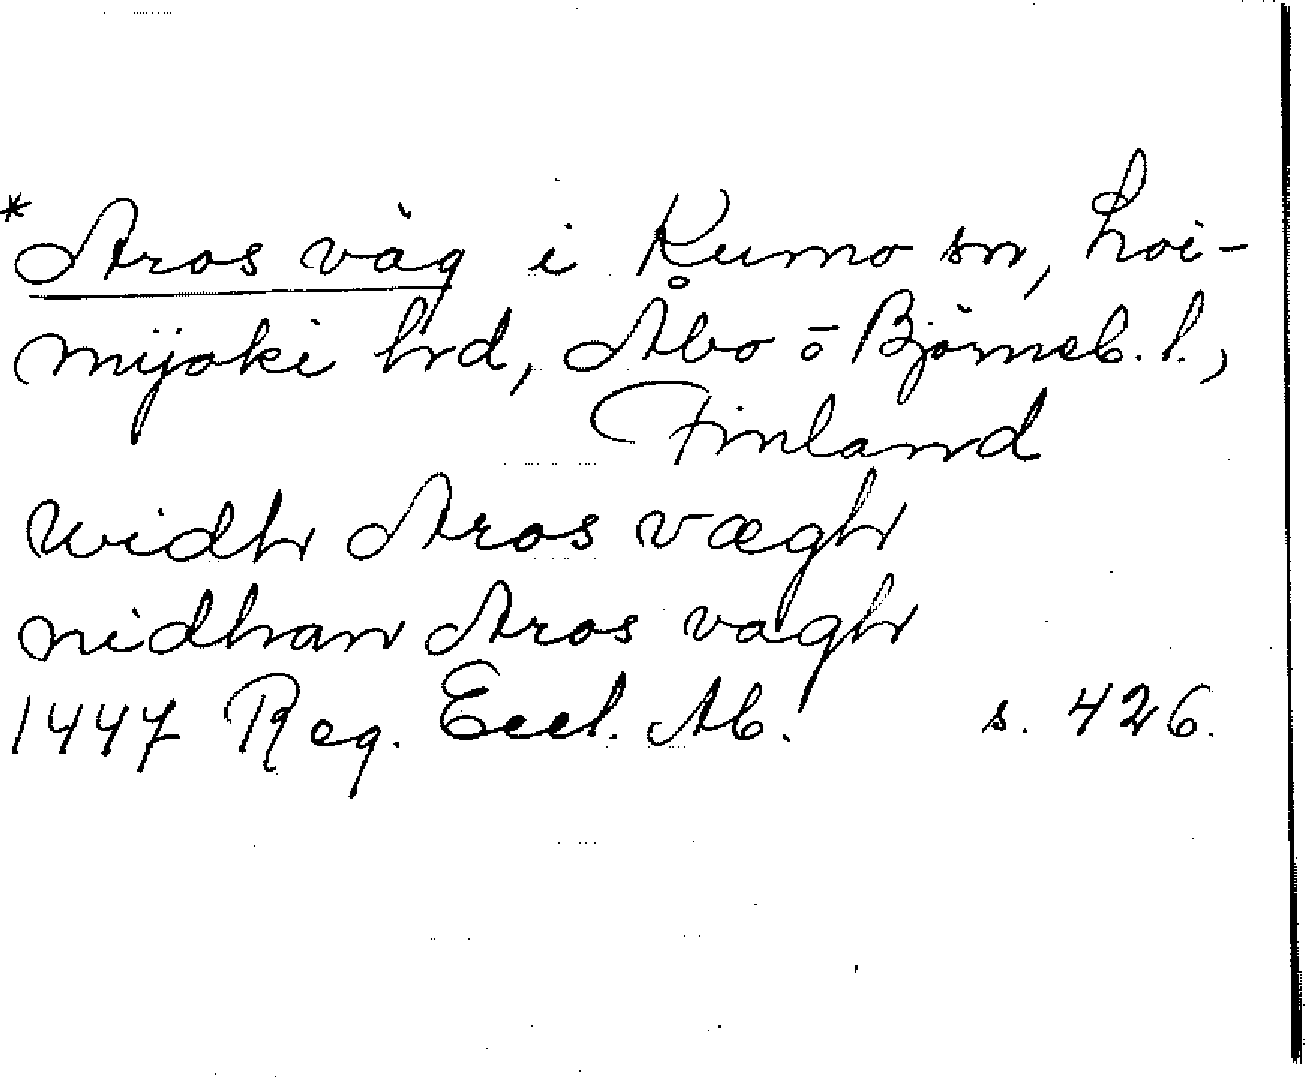 *Aros väg i Kumo sn, Loi-
mijoki hrd, Åbo o Björneb. l.,
Finland
widh Aros vægh
nidhan Aros vagh
1447 Reg. Eccl. Ab. s. 426.